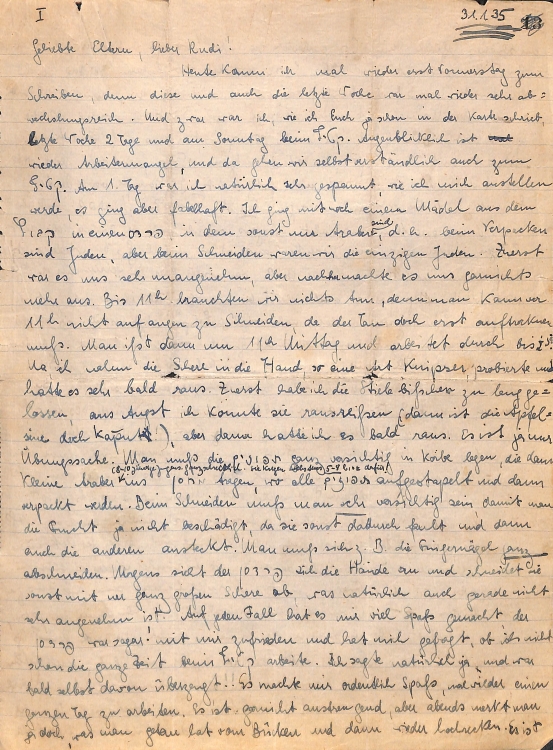 I
31.1.35
Geliebte Eltern, lieber Rudi!
Heute kann ich mal wieder erst Donnerstag zum
Schreiben, denn diese und auch die letzte Woche war mal wieder sehr ab=
wechslungsreich. Und zwar war ich, wie ich Euch ja schon in der Karte schrieb,
letzte Woche 2 Tage und am Sonntag beim קטיף. Augenblicklich ist
wieder Arbeitermangel, und da gehen wir selbstverständlich auch zum
קטיף. Am 1. Tag war ich natürlich sehr gespannt, wie ich mich anstellen
werde, es ging aber fabelhaft. Ich ging mit noch einem Mädel aus dem
in einen פרדס in dem sonst nur Araber sind, d.h. beim Verpacken
sind Juden, aber beim Schneiden waren wir die einzigen Juden. Zuerst
war es uns sehr unangenehm, aber nachher machte es uns garnichts
mehr aus. Bis 11h brauchten wir nichts tun, denn man kann vor
11h nicht anfangen zu schneiden, da der Tau doch erst auftrocknen
muß. Man ißt dann um 11h Mittag und arbeitet durch bis
Na ich nahm die Schere in die Hand, so eine Art Knipser, probierte und
hatte es sehr bald raus. Zuerst habe ich die Stiele bißchen zu lang ge=
lassen aus Angst ich könnte sie rausreißen (dann ist die Apfel=
sine doch kaputt), aber dann hatte ich es bald raus. Es ist ja nur
Übungssache. Man muß die תפוזים ganz vorsichtig in Körbe legen, die dann
kleine Araber ins מחסן tragen, wo alle תפוזים aufgestapelt und dann
verpackt werden. Beim Schneiden muß man sehr vorsichtig sein damit man
die Frucht ja nicht beschädigt, da sie sonst dadurch fault und dann
auch die anderen ansteckt. Man muß sich z.B. die Fingernägel ganz
abschneiden. Morgens sieht der פרדסן sich die Hände an und schneidet sie
sonst mit ner ganz großen Schere ab, was natürlich auch gerade nicht
sehr angenehm ist. Auf jeden Fall hat es mir viel Spaß gemacht der
פרדסן war sogar! mit mir zufrieden und hat mich gefragt, ob ich nicht
schon die ganze Zeit beim קטיף arbeite. Ich sagte natürlich ja, und war
bald selbst davon überzeugt!! Es machte mir ordentlich Spaß, mal wieder einen
ganzen Tag zu arbeiten. Es ist garnicht anstrengend, aber abends merkt man
ja doch, was man getan hat vom Bücken und dann wieder hochrecken. Es ist